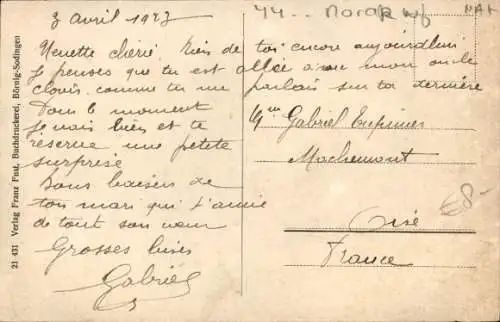 3 Avril 1923
44.. Morap wf
MAK
Nenette chérie. Rien de toi encore aujourdhui
Je penses que tu est allée avec mon oncle
Clovis comme tu me parlais sur ta dernière
Dans le moment
je vais bien et te
reserve une petite
surprise
Bons baisers de
ton mari qui t'aime
de tout son cœur
Grosses bises
Gabriel
Gabriel
Machemont
Oise
France
€8-
21 431 Verlag Franz Paul, Buchdruckerei, Börnig-Sodingen